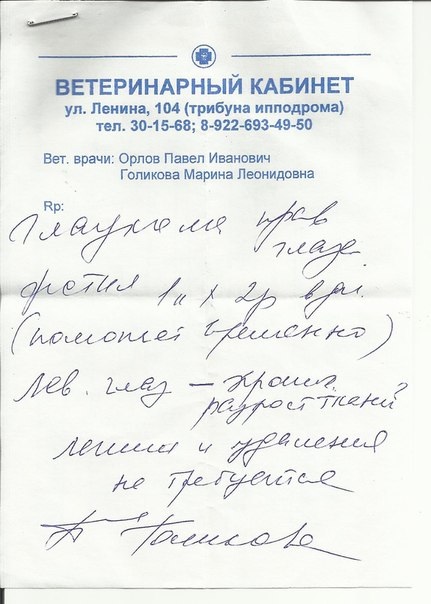 ВЕТЕРИНАРНЫЙ КАБИНЕТ
ул. Ленина, 104 (трибуна ипподрома)
тел. 30-15-68; 8-922-693-49-50
Вет. врачи: Орлов Павел Иванович
Голикова Марина Леонидовна
Rp:
Глаукома прав
глаза
1к х 2р в дн.
(помогает временно)
Лев. глаз —
разрост ткани
и удаления
не требуется
Голикова